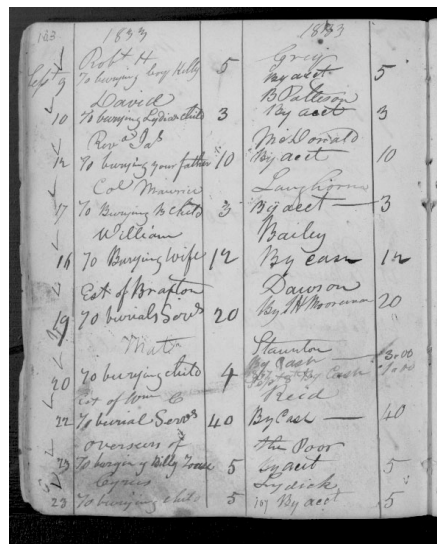 183 1833 1833
Robt H. Grey
Sept 9 To burying boy Kelly 5 By acct 5
David B Patteson
10 To burying Lydias child 3 By acct 3
Revd Jas McDonald
12 To burying your father 10 By acct 10
Col Maurice Langhorne
17 To Burying B child 3 By acct 3
William Bailey
18 To Burying Wife 12 By Cash 12
Est of Braxton Dawson
19 To burial Servs 20 By 20
Staunton
20 To burying child 4 By Cash 3.00
By Cash 1.00
Est of Wm Reid
22 To burial Servs 40 By Cash 40
overseers of the Poor
23 To burying Billy 5 By acct 5
Cyrus Lydick
23 To burying child 5 By acct 5